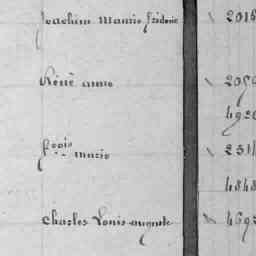 Joachim Mario frideric \ 2016
Réné anne \ 209
492
fçois marie \ 231
4848
Charles Louis auguste \ 469